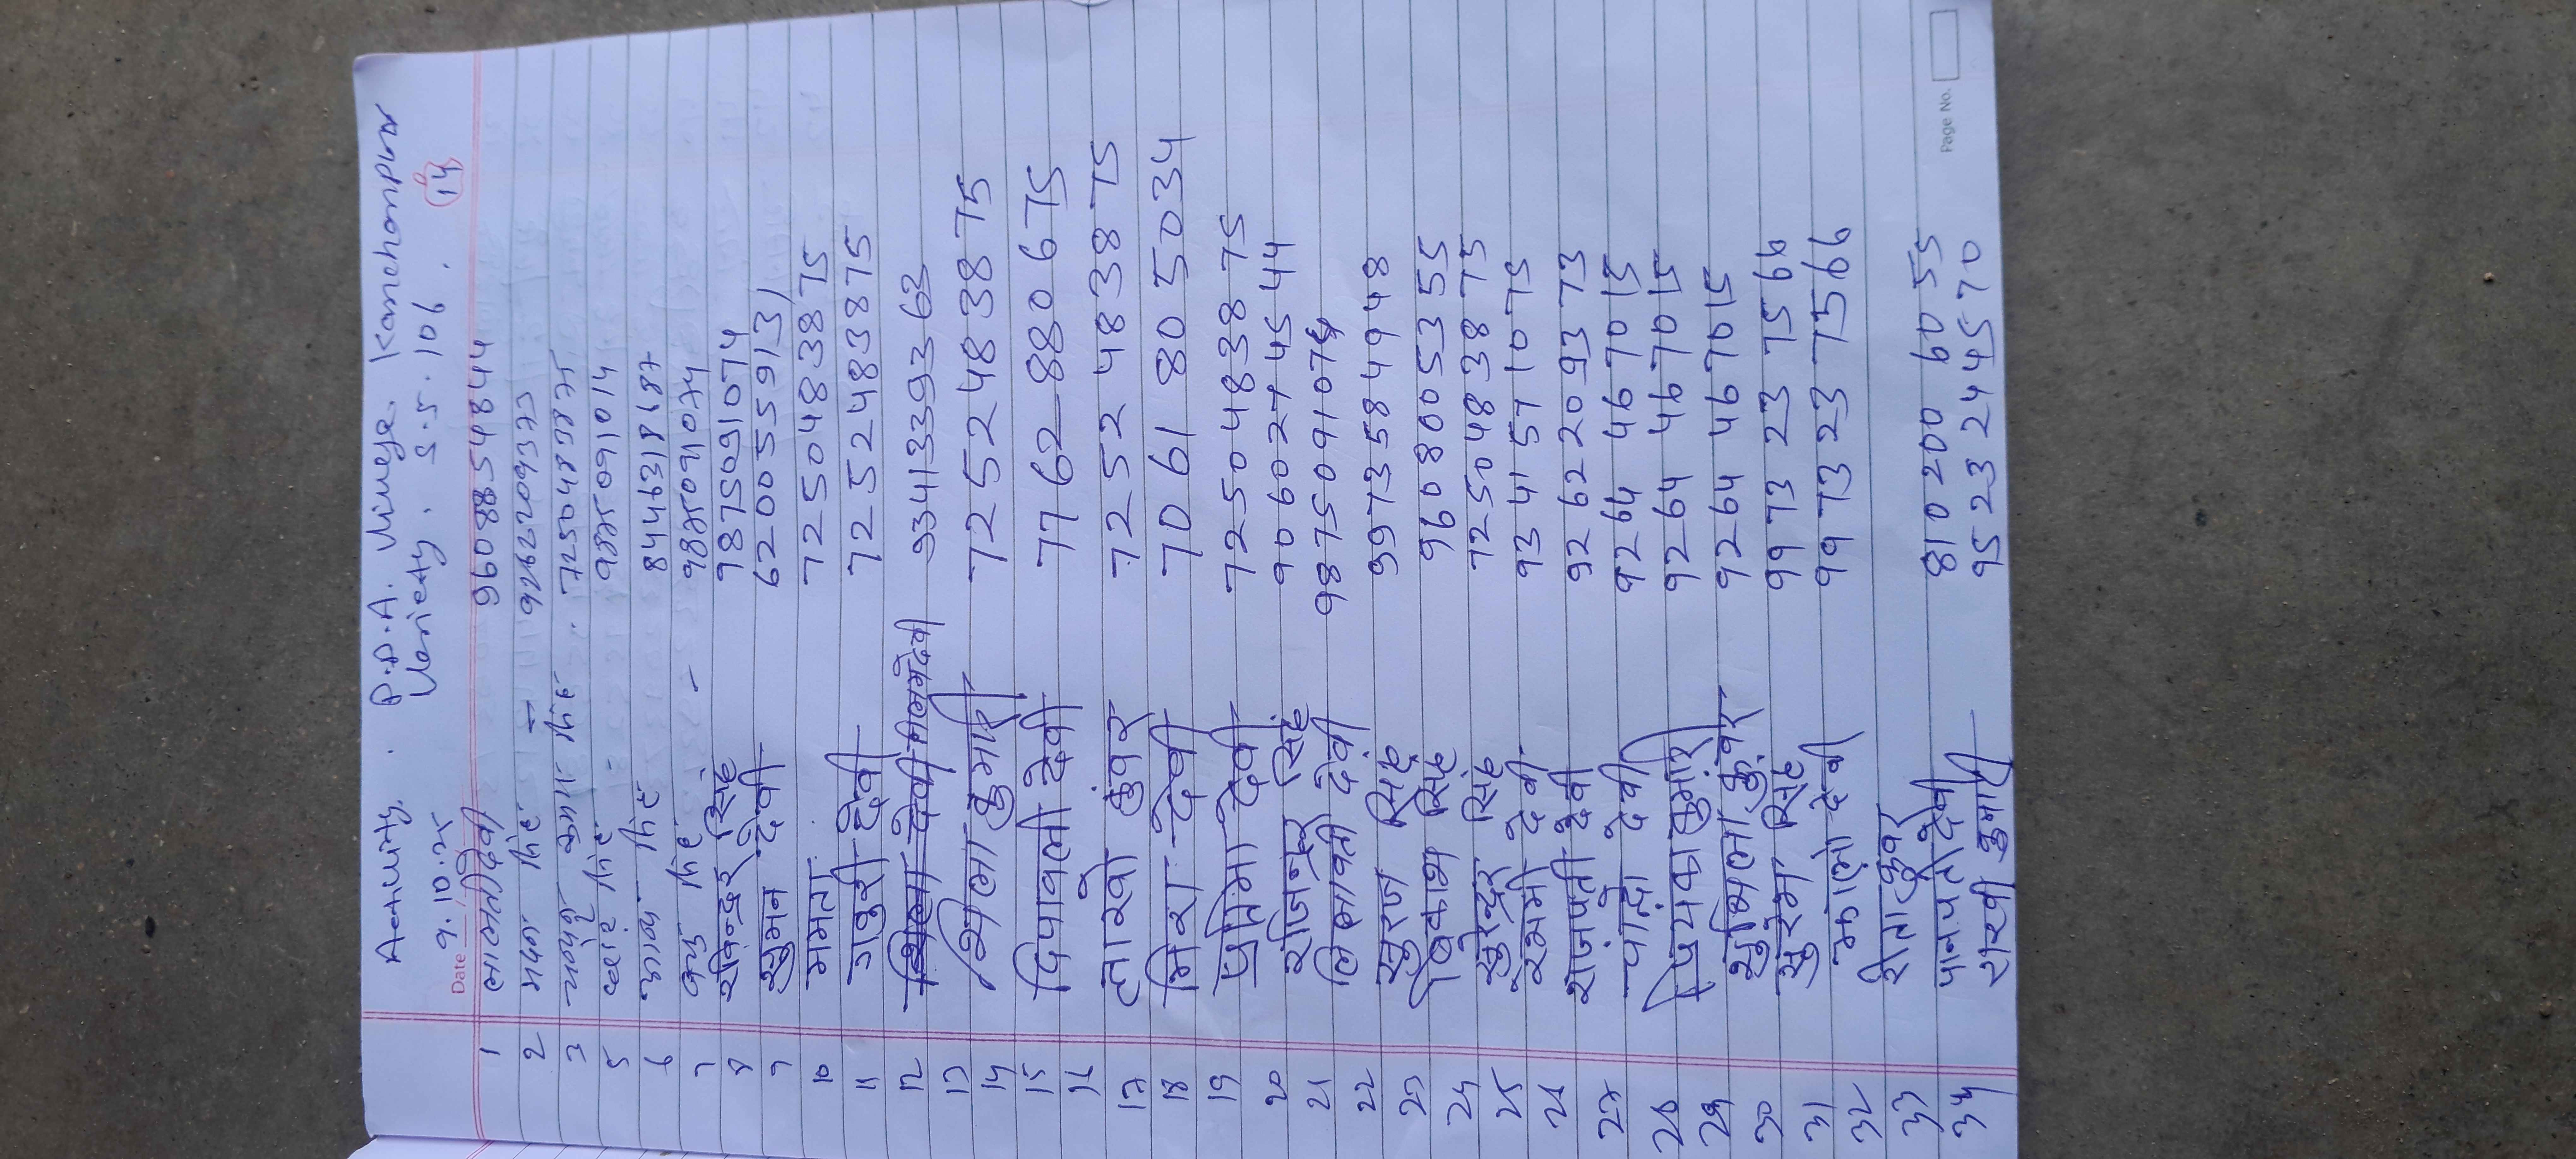 Activity. P.D.A. Village. Kanchanpur
Date 9.10.25 Variety. S.S. 106. 14
1 लालती देवी 9608854844
2 मदन सिंह 9262209373
3 7250483875
5 सिंह 9875091014
6 सिंह 8446318487
7 सिंह 9875091074
8 रविन्द्र सिंह 9875091074
9 सुमन देवी 6200559131
10 ममता 7250483875
11 देवी 7252483875
12 शिला देवी 9341339363
13
14 शिला कुमारी 7252483875
15 दिपावली देवी 7762880675
16
17 लाखो कुंवर 7252483875
18 मिरा देवी 7061805034
19 प्रतिमा देवी 7250483875
20 राजेन्द्र सिंह 9060274544
21 लिलावती देवी 9875091074
22 सुरज सिंह 9973584948
23 विकाश सिंह 9608005355
24 सुरेन्द्र सिंह 7250483875
25 रश्मी देवी 9341571075
26 राजपती देवी 9262209373
27 देवी 9264467015
28 प्रियंका कुमारी 9264467015
29 कुंवर 9264467015
30 सिंह 9973237566
31 देवी 9973237566
32 कुंवर
33 देवी 8102006055
34 कुमारी 9523244570
Page No.